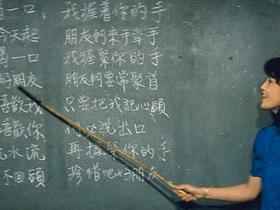 一口， 我握着你的手
今天起 朋友們來手牽手
一口 我握緊你的手
好朋友 朋友們要常聚首
喜歡我 只要把我記心頭
喜歡你 何必說出口
水流 再握緊你的手
不回頭 珍惜吧 朋友